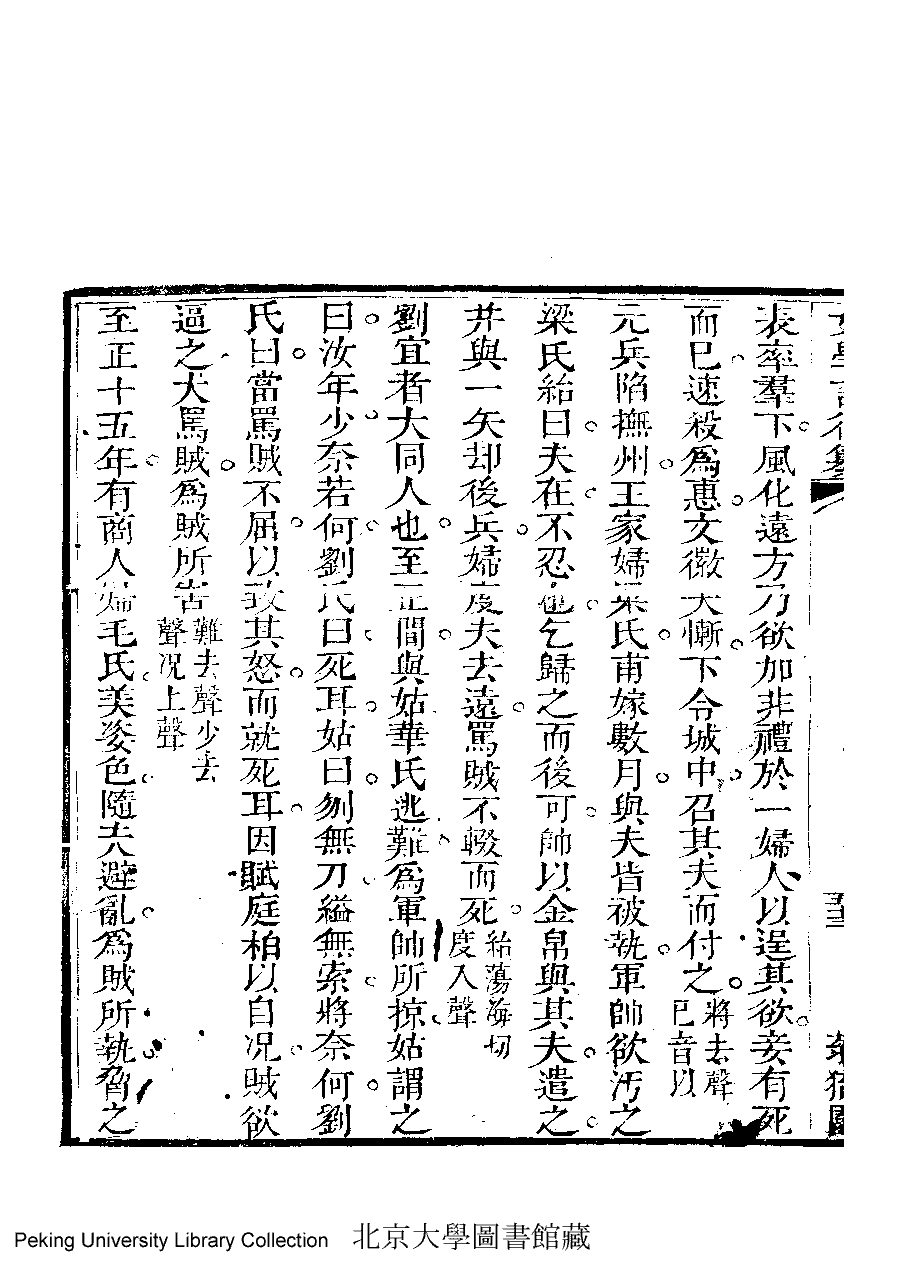 表率羣下風化遠方乃欲加非禮於一婦人以逞其欲妾有死
而已速殺爲惠文徽大慚下令城中召其夫而付之將去聲
已音以
元兵陷撫州王家婦梁氏甫嫁數月與夫皆被執軍帥欲汚之
梁氏紿曰夫在不忍也乞歸之而後可帥以金帛與其夫遣之
并與一矢却後兵婦度夫去遠罵賊不輟而死紿蕩海切
度入聲
劉宜者大同人也至正間與姑華氏逃難爲軍帥所掠姑謂之
曰汝年少奈若何劉氏曰死耳姑曰刎無刀縊無索將奈何劉
氏曰當罵賊不屈以致其怒而就死耳因賦庭柏以自况賊欲
逼之大罵賊爲賊所害難去聲少去
聲况上聲
至正十五年有商人婦毛氏美姿色隨夫避亂爲賊所執脅之
Peking University Library Collection 北京大學圖書館藏